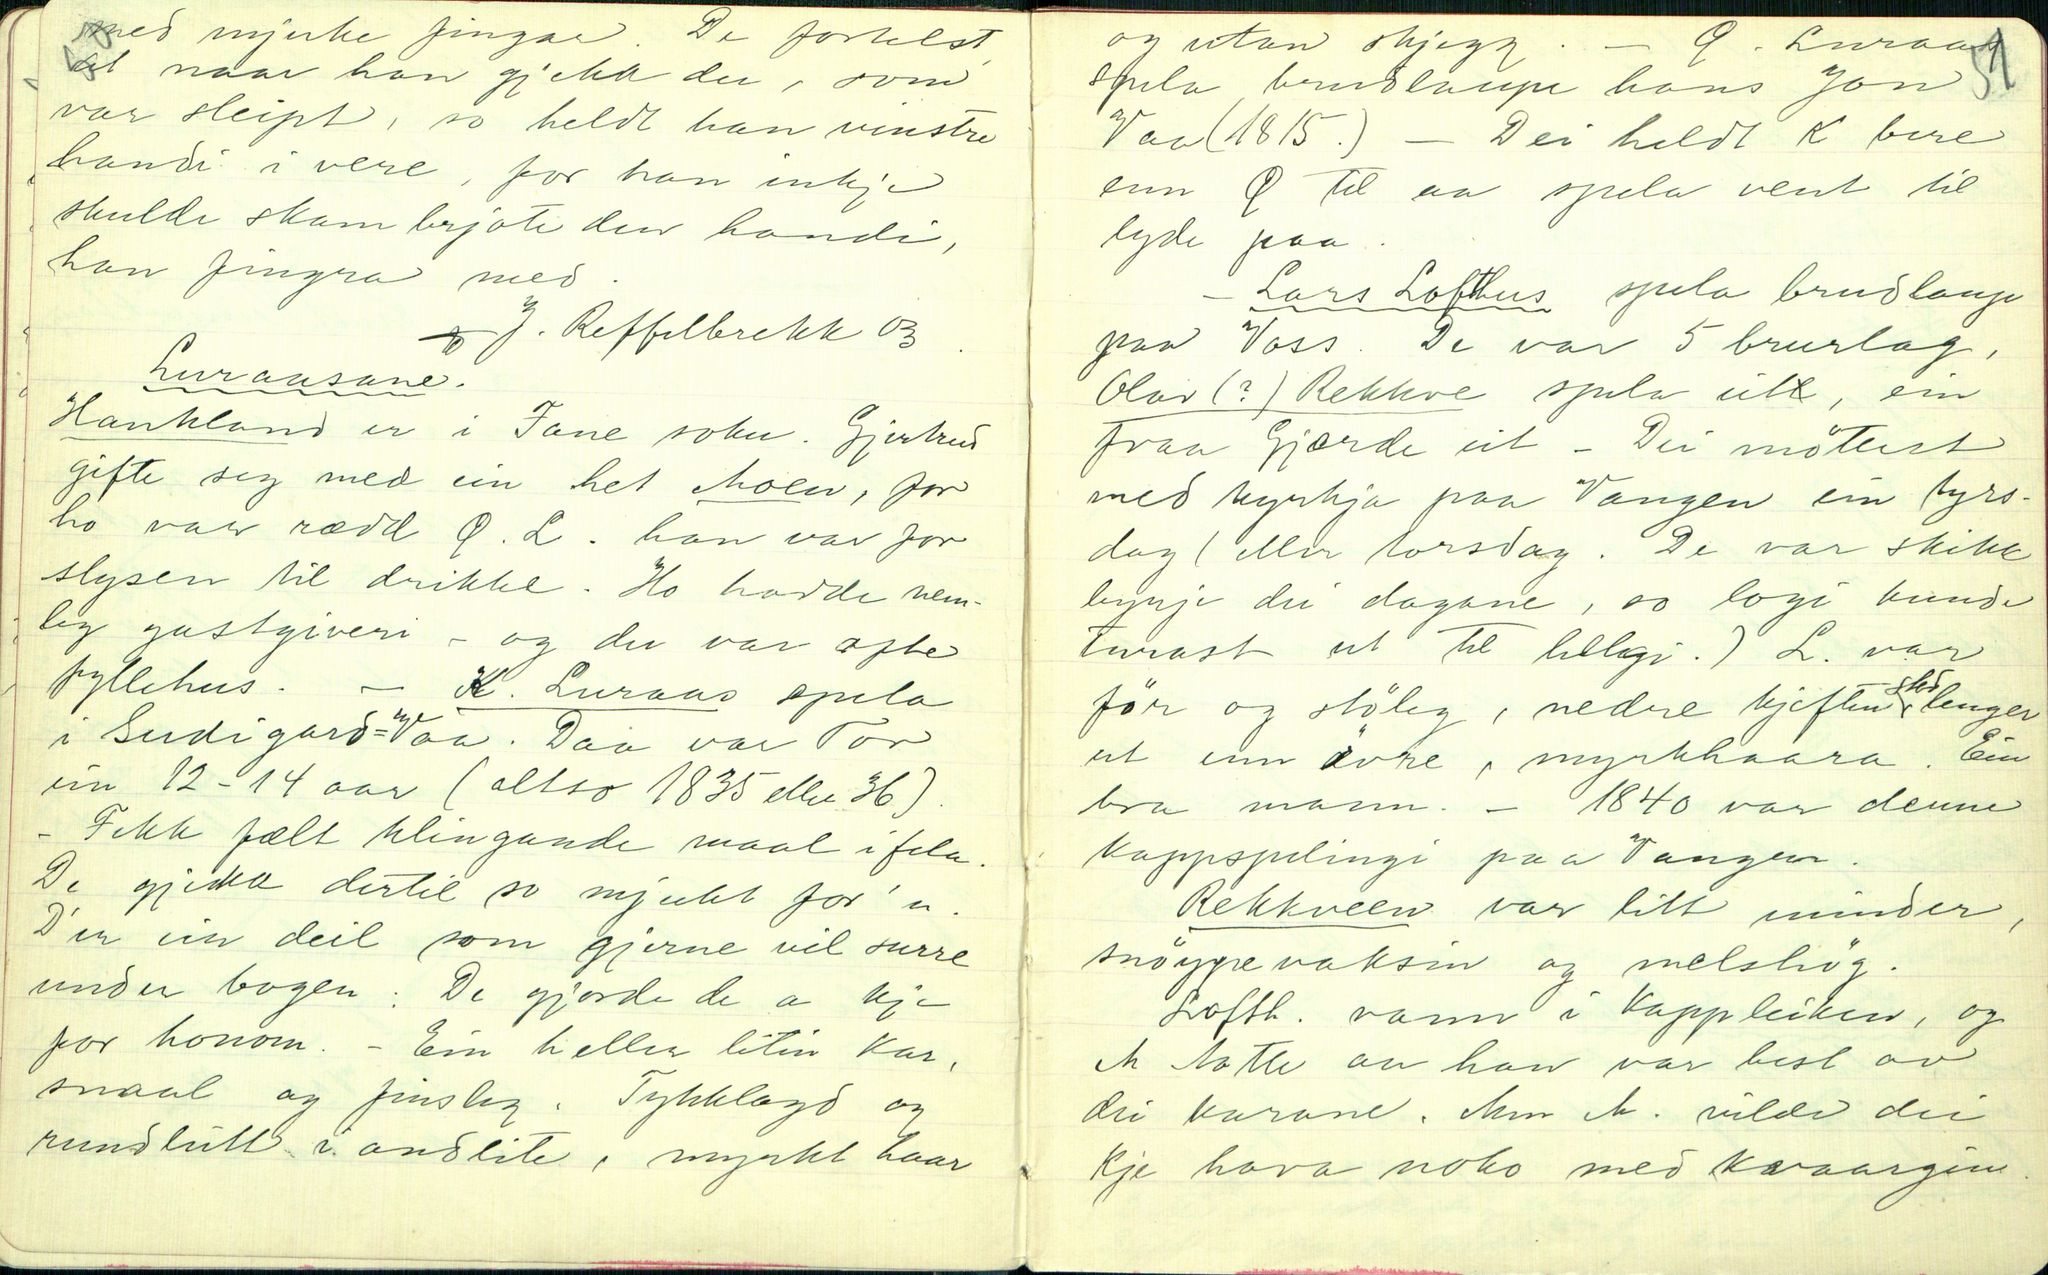 med mjuke fingar. De fortelst,
at naar han gjekk der, som
var sleipt, so heldt han vinstre
handi i vere, for han inkje
skulde skambrjote den handi,
han fingra med.
J. Reffelbrekk 03.
Luraasane.
Haukland er i Fane sokn. Gjertrud
gifte seg med ein het Moen, for
ho var rædd Ø. L. han var for
slysen til drikke. Ho hadde nem-
leg gastgiveri – og der var ofte
fyllehus. – K. Luraas spela
i Sudigard=Vaa. Daa var Tor
ein 12-14 aar (altso 1835 eller 36).
– Fekk fælt klingande maal i fela.
De gjekk dertil so mjukt for 'n.
D'er ein deil som gjerne vil surre
under bogen: De gjorde de a kje
for honom. – Ein heller liten kar,
smaal og finsleg. Tykklagd og
rundlitt i andlite, myrkt haar
51
og utan skjegg. – Ø. Luraas
spela brudlaupe hans Jon
Vaa (1815.) – Dei heldt K bere
enn Ø til aa spela vent til
lyde paa.
– Lars Lofthus spela brudlaup
paa Voss. De var 5 brurlag,
Olav (?) Rekkve spela eitt, ein
fraa Gjærde eit – Dei möttest
med kyrkja paa Vangen ein tyrs-
dag (eller torsdag. De var skikk
byrje dei dagane, so logi kunde
turast ut til helgi.) L. var
för og stöleg, nedre kjeften stod lenger
ut enn övre, myrkhaara. Ein
bra mann. – 1840 var denne
kappspelingi paa Vangen.
Rekkveen var litt minder,
snöggvaksin og melshög.
Lofth. vann i kappleiken, og
M totte an han var best av
dei karane. Men M. vilde dei
kje hava noko med kvaargine